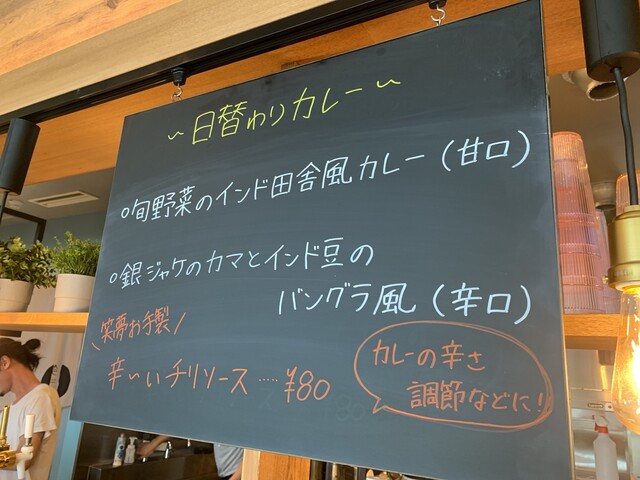 ~日替わりカレー~
○旬野菜のインド田舎風カレー(甘口)
○銀ジャケのカマとインド豆の
バングラ風(辛口)
\笑夢お手製/
辛〜いチリソース……¥80
カレーの辛さ
調節などに!